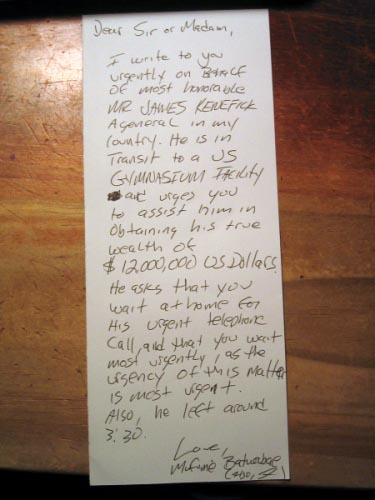 Dear Sir or Madam,
I write to you
urgently on Behalf
of most honorable
MR JAMES KENEFICK
A general in my
country. He is in
Transit to a US
GYMNASIUM FACILITY
and urges you
to assist him in
Obtaining his true
wealth of
$12,000,000 US Dollars.
He asks that you
wait at home for
His urgent telephone
Call, and that you wait
most urgently, as the
urgency of this matter
is most urgent.
Also, he left around
3:30.
Love,